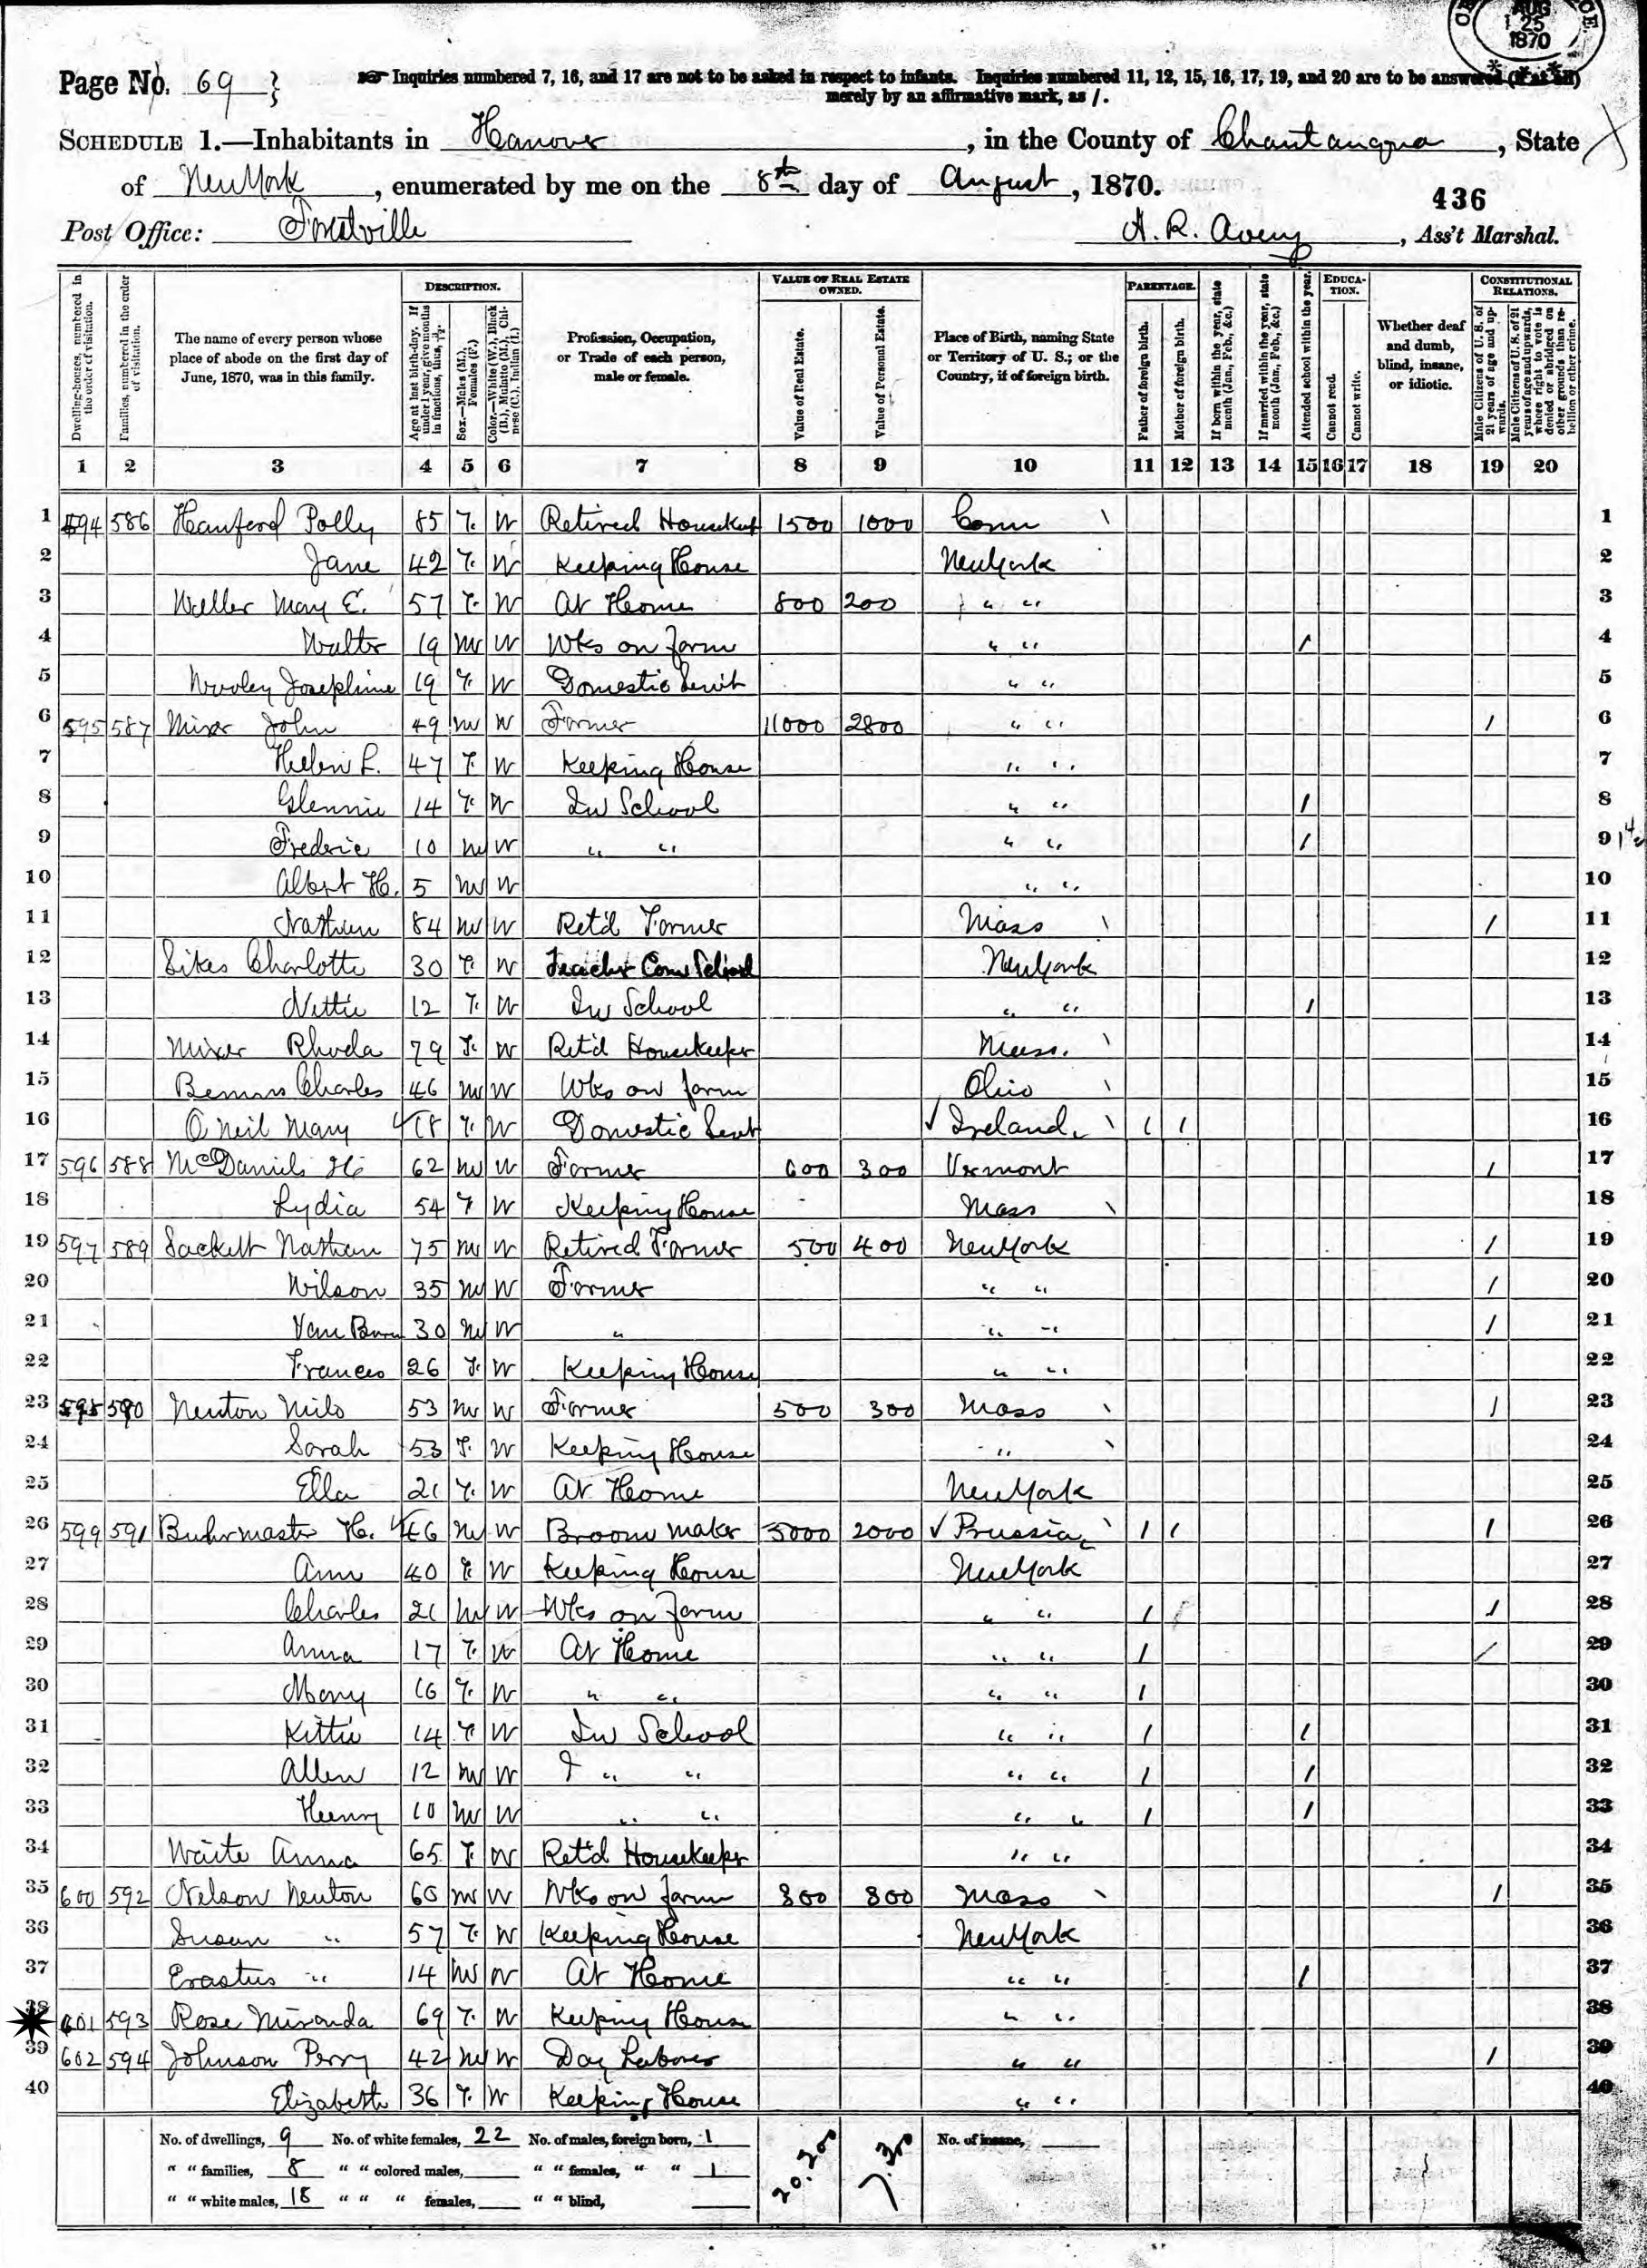 AUG
25
1870
Page No. 69
Inquiries numbered 7, 16, and 17 are not to be asked in respect to infants. Inquiries numbered 11, 12, 15, 16, 17, 19, and 20 are to be answered (if at all)
merely by an affirmative mark, as /.
SCHEDULE 1.—Inhabitants in Hanover, in the County of Chautauqua, State
of New York, enumerated by me on the 8th day of August, 1870.
436
Post Office: Forestville A. R. Avery, Ass't Marshal.
Dwelling-houses, numbered in the order of visitation.
Families, numbered in the order of visitation.
The name of every person whose place of abode on the first day of June, 1870, was in this family.
DESCRIPTION.
Age at last birth-day. If under 1 year, give months in fractions, thus, 3/12.
Sex.—Males (M.), Females (F.)
Color.—White (W.), Black (B.), Mulatto (M.), Chinese (C.), Indian (I.)
Profession, Occupation, or Trade of each person, male or female.
VALUE OF REAL ESTATE OWNED.
Value of Real Estate.
Value of Personal Estate.
Place of Birth, naming State or Territory of U. S.; or the Country, if of foreign birth.
PARENTAGE.
Father of foreign birth.
Mother of foreign birth.
If born within the year, state month (Jan., Feb., &c.)
If married within the year, state month (Jan., Feb., &c.)
Attended school within the year.
EDUCATION.
Cannot read.
Cannot write.
Whether deaf and dumb, blind, insane, or idiotic.
CONSTITUTIONAL RELATIONS.
Male Citizens of U. S. of 21 years of age and upwards.
Male Citizens of U. S. of 21 years of age and upwards, where right to vote is denied or abridged on other grounds than rebellion or other crime.
1 2 3 4 5 6 7 8 9 10 11 12 13 14 15 16 17 18 19 20
1 594 586 Hanford Polly 85 F. W Retired Housekep 1500 1000 Conn \ 1
2 Jane 42 F. W Keeping House New York 2
3 Weller Mary E. 57 F. W At Home 800 200 " " 3
4 Walter 19 M W Wks on farm " " / 4
5 Wooley Josephine 19 F. W Domestic Servt " " 5
6 595 587 Mixer John 49 M W Farmer 11000 2800 " " / 6
7 Helen L. 47 F W Keeping House " " 7
8 Glennie 14 F. W In School " " / 8
9 Frederic 10 M W " " " " / 9
10 Albert H. 5 M W " " 10
11 Nathan 84 M W Ret'd Farmer Mass \ / 11
12 Sikes Charlotte 30 F. W Teacher Com School New York 12
13 Nettie 12 F. W In School " " / 13
14 Mixer Rhoda 79 F. W Ret'd Housekeeper Mass. \ 14
15 Bemus Charles 46 M W Wks on farm Ohio \ 15
16 O Neil Mary 18 F. W Domestic Servt √ Ireland \ / / 16
17 596 588 McDaniels 62 M W Farmer 600 300 Vermont / 17
18 Lydia 54 F W Keeping House Mass \ 18
19 597 589 Sackett Nathan 75 M W Retired Farmer 500 400 New York / 19
20 Wilson 35 M W Farmer " " / 20
21 Van Buren 30 M W " " " / 21
22 Frances 26 F. W Keeping House " " 22
23 598 590 Newton Milo 53 M W Farmer 500 300 Mass \ / 23
24 Sarah 53 F. W Keeping House " \ 24
25 Ella 21 F. W At Home New York 25
26 599 591 Buhrmaster H. 46 M W Broom maker 5000 2000 √ Prussia \ / / / 26
27 Ann 40 F. W Keeping House New York 27
28 Charles 21 M W Wks on farm " " / / 28
29 Anna 17 F. W At Home " " / / 29
30 Mary 16 F. W " " " " / 30
31 Kittie 14 F W In School " " / / 31
32 Allen 12 M W " " " " / / 32
33 Henry 10 M W " " " " / / 33
34 Waite Anna 65 F. W Ret'd Housekeeper " " 34
35 600 592 Nelson Newton 60 M W Wks on farm 800 800 Mass \ / 35
36 Susan " 57 F. W Keeping House New York 36
37 Erastus " 14 M W At Home " " / 37
38 601 593 Rose Miranda 69 F. W Keeping House " " 38
39 602 594 Johnson Perry 42 M W Day Laborer " " / 39
40 Elizabeth 36 F. W Keeping House " " 40
No. of dwellings, 9 No. of white females, 22 No. of males, foreign born, 1 20.200 7.300 No. of insane,
" " families, 8 " " colored males, " " females, " " 1
" " white males, 18 " " " females, " " blind,